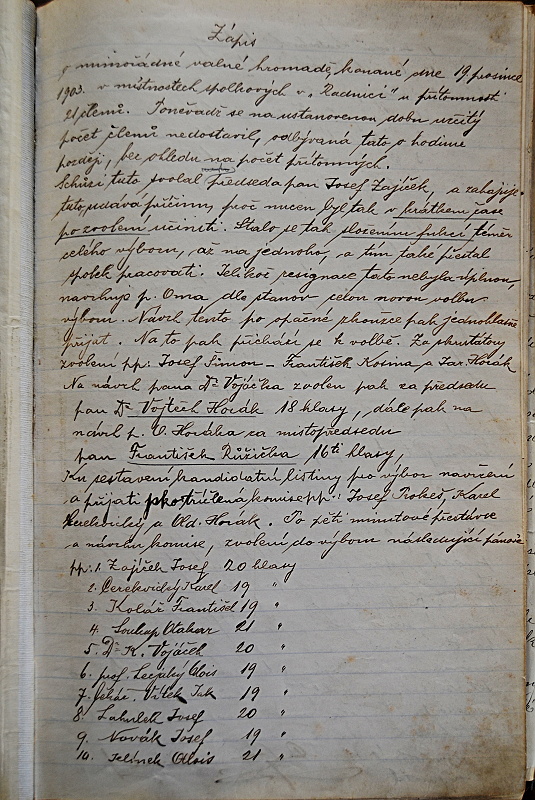 Zápis
o mimořádné valné hromadě, konané dne 19 prosince
1903. v místnostech spolkových v „Radnici" u přítomnosti
21 členů. Poněvadž se na ustanovenou dobu určitý
počet členů nedostavil, odbývaná tato o hodinu
později, bez ohledu na počet přítomných.
Schůzi tuto svolal předseda pan Josef Zajíček, a zahajuje
tuto, udává příčinu, proč nucen byl tak v krátkém čase
po zvolení učiniti. Stalo se tak složením funkcí téměř
celého výboru, až na jednoho, a tím také přestal
spolek pracovati. Jelikož resignace tato nebyla úplnou,
navrhuje p. Oma dle stanov celou novou volbu
výboru. Návrh tento po opačné zkoušce pak jednohlasně
přijat. Na to pak přichází se k volbě. Za skrutátory
zvoleni pp: Josef Šimon – František Kosina a Jar. Horák
Na návrh pana Dr Vojáčka zvolen pak za předsedu
pan Dr Vojtěch Horák 18 hlasy, dále pak na
návrh p. O. Horáka za místopředsedu
pan František Růžička 16ti hlasy,
Ku sestavení kandidátní listiny pro výbor navrženi
a přijati komise pp: Josef Prokeš, Karel
Cerekvický a Old. Horák. Po pěti minutové přestávce
a návrhu komise, zvoleni do výboru následující pánové
pp: 1. Zajíček Josef 20 hlasy
2. Cerekvický Karel 19 "
3. Kolář František 19 "
4. Soukup Otakar 21 "
5. Dr K. Vojáček 20 "
6. prof. Lepský Alois 19 "
7. Vítek Jak 19 "
8. Josef 20 "
9. Novák Josef 19 "
10. Jelínek Alois 21 "